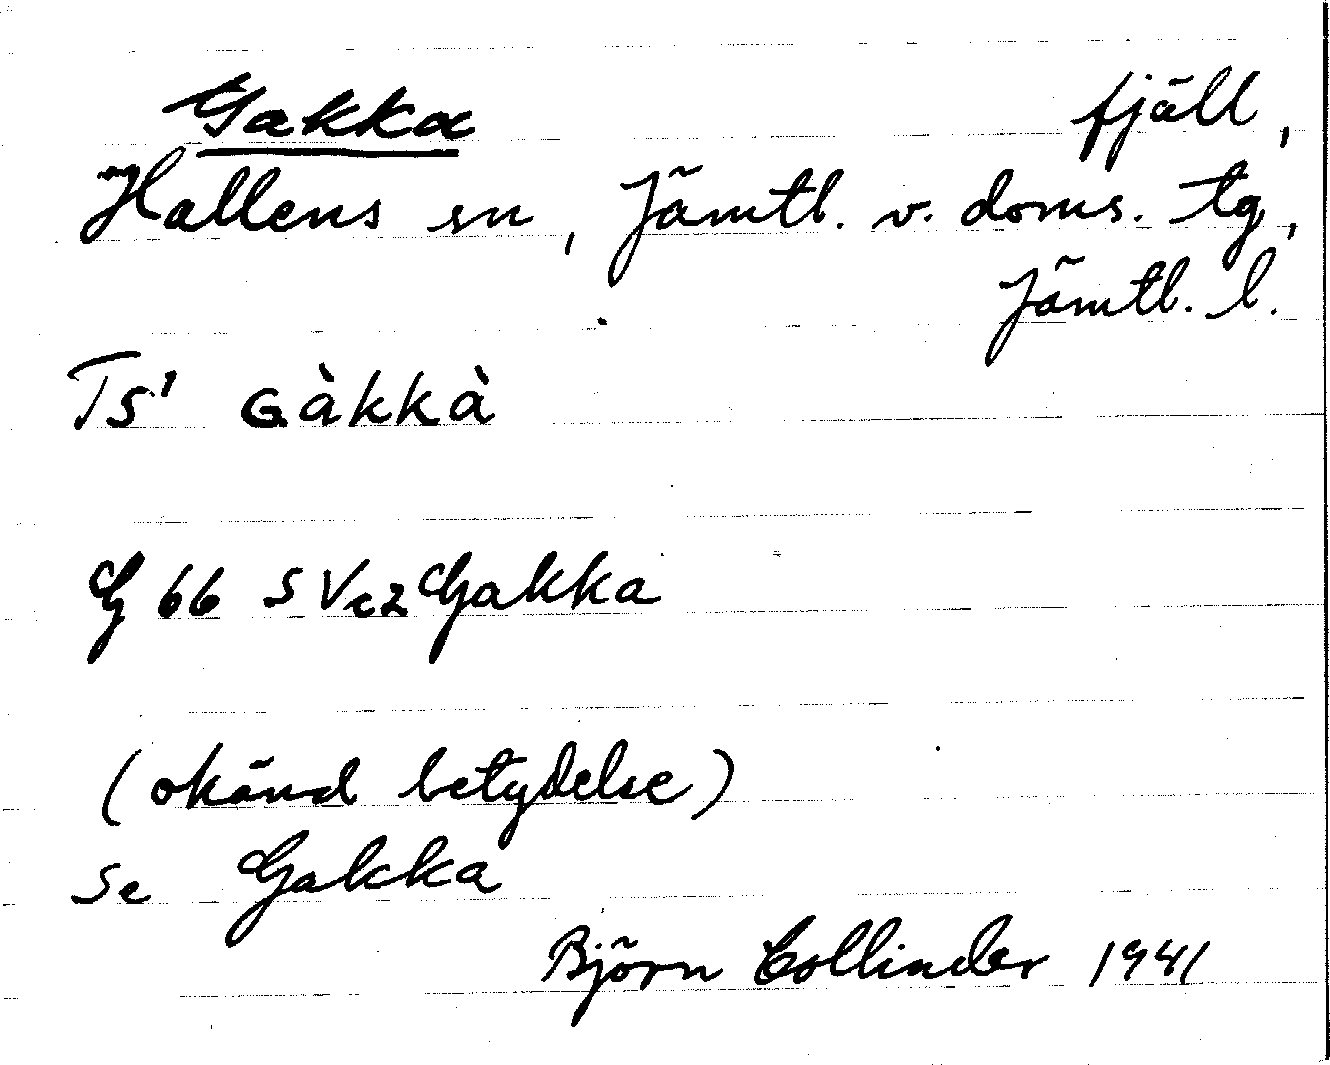 Gakka fjäll,
Hallens sn, Jämtl. v. doms. tg,
Jämtl. l.
TS' GÀKKÀ
G 66 S Vc2 Gakka
(okänd betydelse)
se Gakka
Björn Collinder 1941